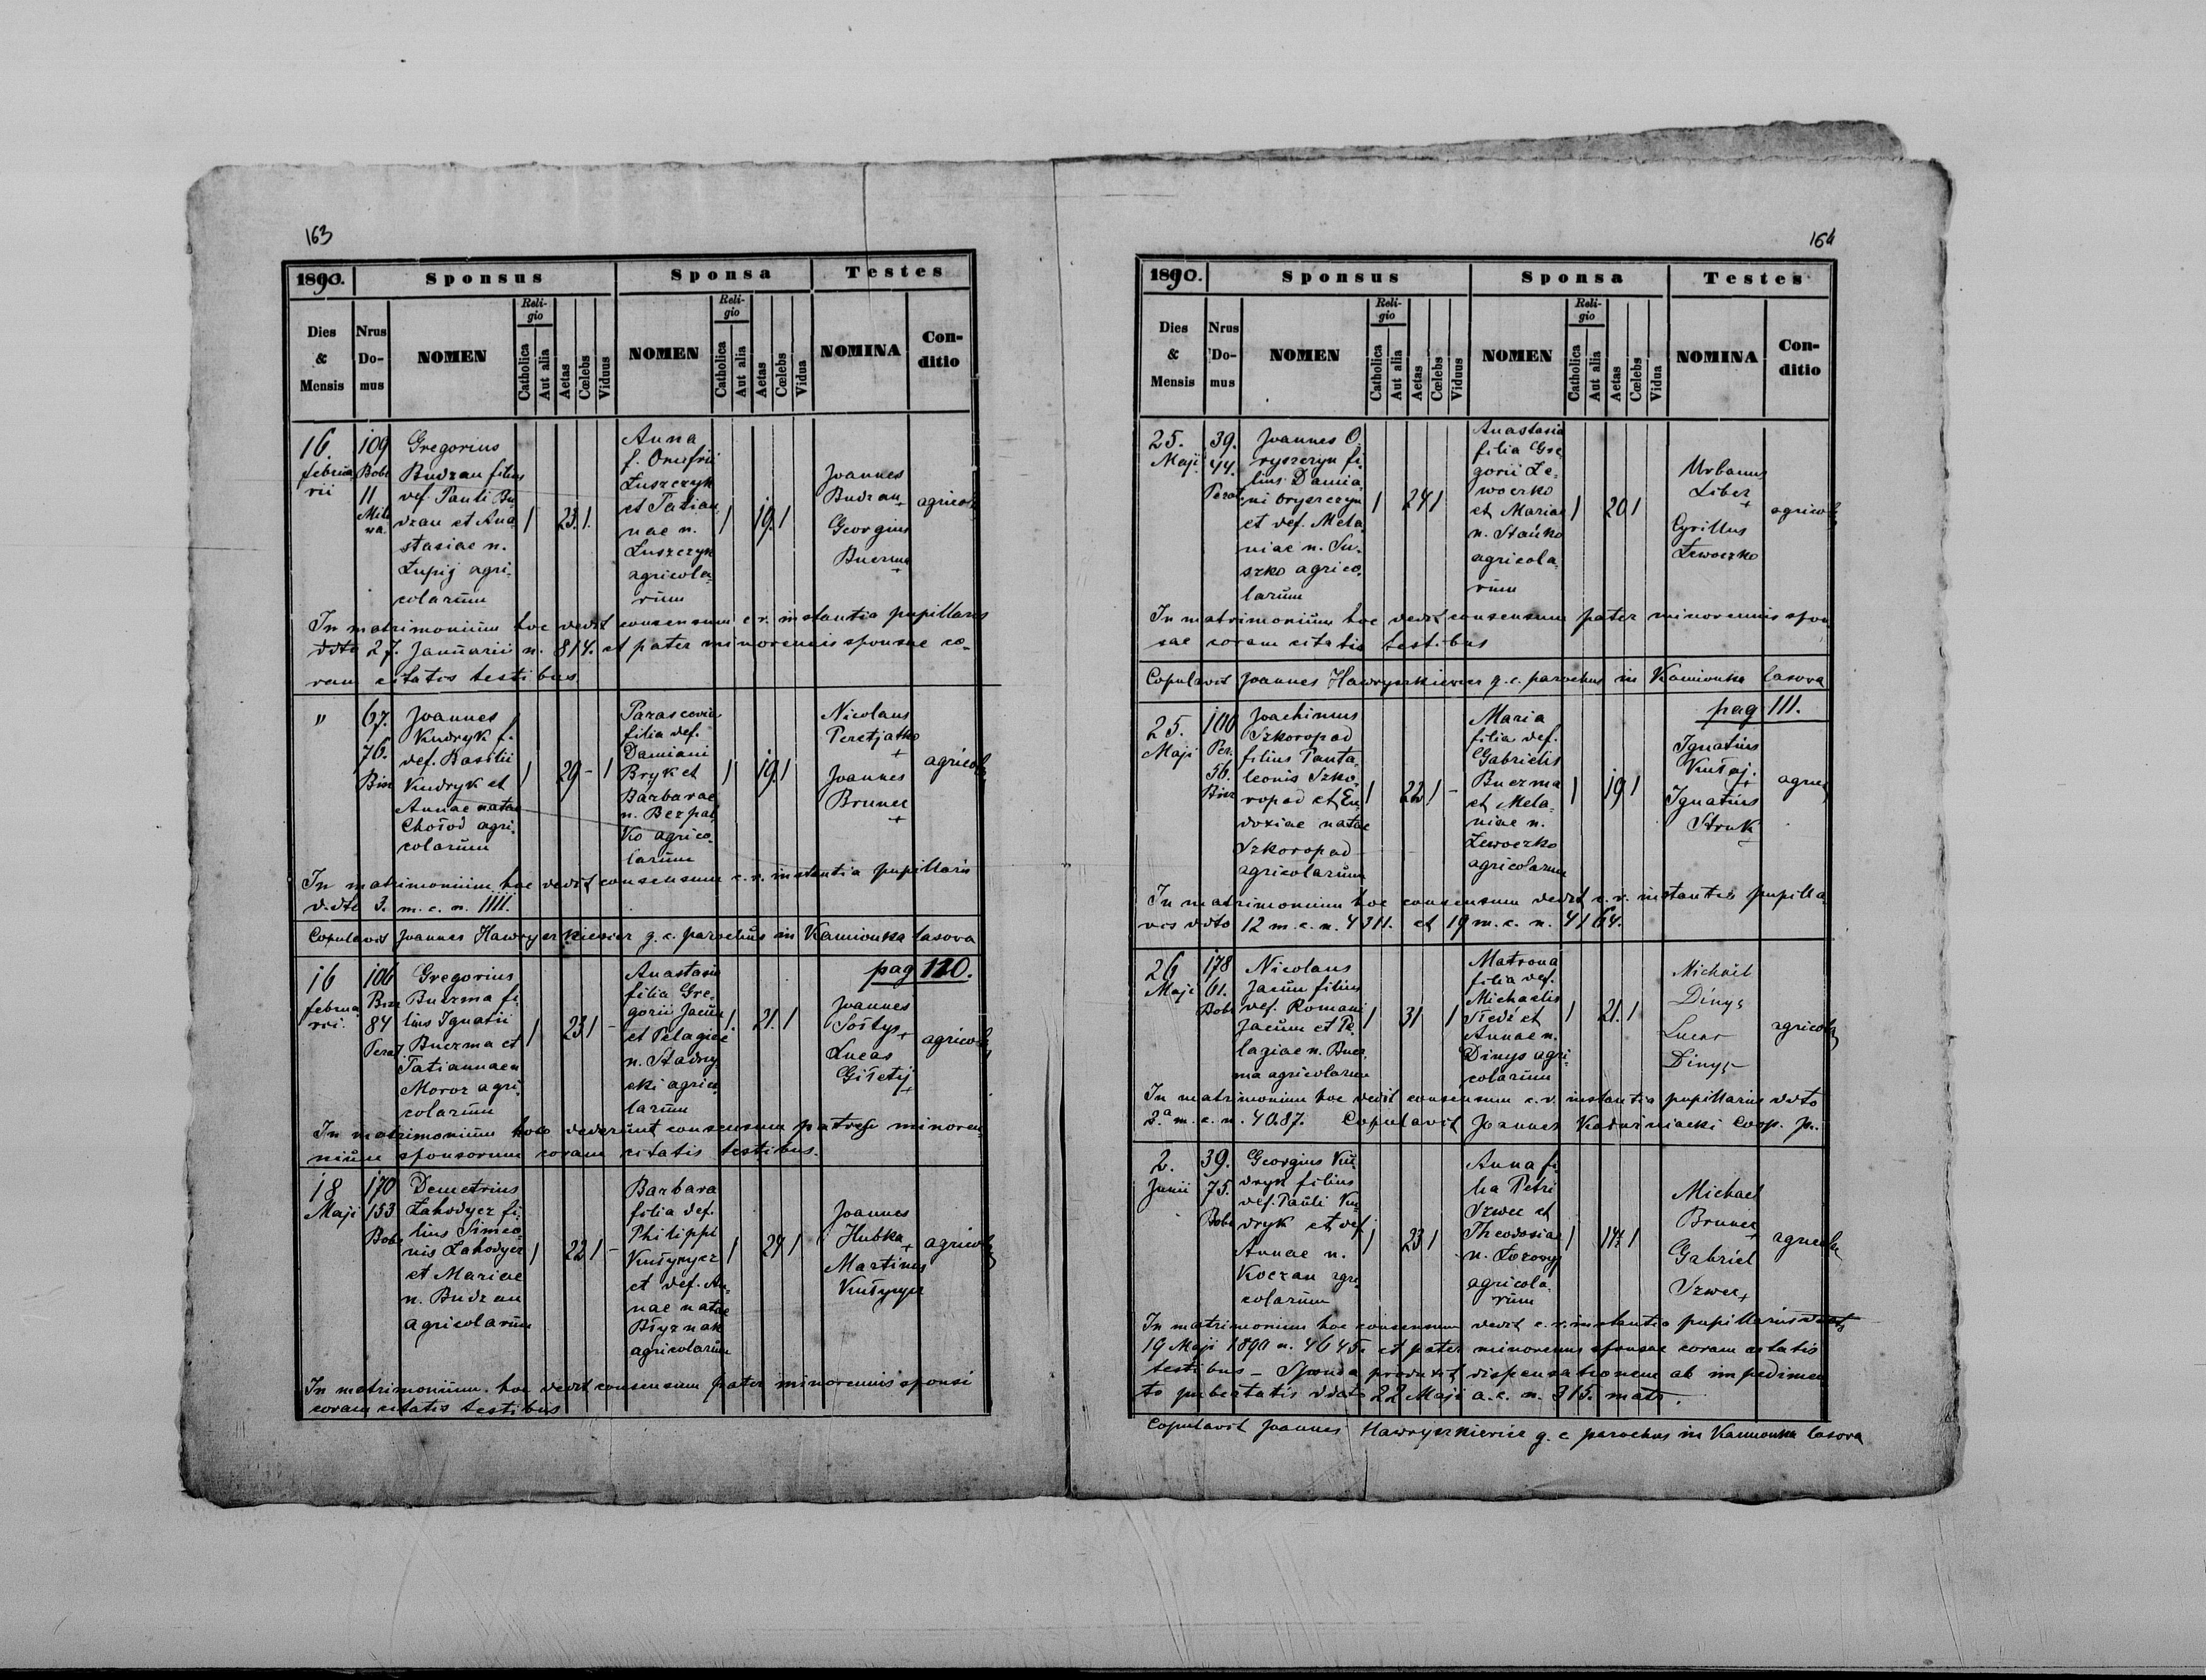 163
1890.
Sponsus
Sponsa
Testes
Dies & Mensis
Nrus Domus
NOMEN
Religio
Catholica
Aut alia
Aetas
Cœlebs
Viduus
NOMEN
Religio
Catholica
Aut alia
Aetas
Cœlebs
Vidua
NOMINA
Conditio
16.
februa
rii
109
Bobr
11
Gregorius
Budzan filius
def. Pauli Bu
dzan et Ana
stasiae n.
Łupij agri-
colarum
1 23. 1.
Anna
f. Onufrii
Łuszczyk
et Tatian
nae n.
Łuszczyk
agricola
rum
1 19. 1
Joannes
Budzan
+
Georgius
Buczma
+
agricolae
In matrimonium hoc dedit consensum c. r. instantia pupillaris
ddto 27. Januarii n. 814. et pater minorennis sponsae co-
ram citatis testibus
"
67.
76.
Joannes
Kudryk f.
def. Basilii
Kudryk et
Annae natae
Chołod agri.
colarum
1 29 - 1
Parascevia
filia def.
Damiani
Bryk et
Barbarae
n. Bezpal
ko agrico-
larum
1 19. 1
Nicolaus
Peretjatko
+
Joannes
Brunec
+
agricolae
In matrimonium hoc dedit consensum c. r. instantia pupillaris
ddto 3. m. c. n. 1111.
Copulavit Joannes Hawryszkiewicz g. c. parochus in Kamionka lasova
pag 110.
16
februa
rii.
106
84
Gregorius
Buczma fi
lius Ignatii
Buczma et
Tatiannae n
Moroz agri
colarum
1 23 1 -
Anastasia
filia Gre
gorii Jacün
et Pelagiae
n. Stadny
cki agrico
larum
1 21. 1
Joannes
Sołtys
+
Lucas
Giłetij
+
agricolae
In matrimonium hoc dederunt consensum patres minoren
nium sponsorum coram citatis testibus.
18
Maji
170
153
Bobr
Demetrius
Łahodycz fi
lius Simeo
nis Łahodycz
et Mariae
n. Budzan
agricolarum
1 22 1 -
Barbara
filia def.
Philippi
et def. An
nae natae
Błyznak
agricolarum
1 24 1
Joannes
Hubka
+
Martinus
agricolae
In matrimonium hoc dedit consensum pater minorennis sponsi
coram citatis testibus
164
1890.
Sponsus
Sponsa
Testes
Dies & Mensis
Nrus Domus
NOMEN
Religio
Catholica
Aut alia
Aetas
Cœlebs
Viduus
NOMEN
Religio
Catholica
Aut alia
Aetas
Cœlebs
Vidua
NOMINA
Conditio
25.
Maji
39.
44.
Joannes O
ryszczyn fi
lius Damia
ni Oryszczyn
et def. Mela
niae n. Su
szko agrico.
larum
1 24 1
Anastasia
filia Gre
gorii Le
woczko
et Mariae
n. Stańko
agricola
rum
1 20 1
Urbanus
Liber
+
Cyrillus
Lewoczko
agricolae
In matrimonium hoc dedit consensum pater minorennis spon
sae coram citatis testibus
Copulavit Joannes Hawryszkiewicz g. c. parochus in Kamionka lasova
pag 111.
25.
Maji
100
56.
Joachimus
Szkoropad
filius Panta
leonis Szko
ropad et Eu
doxiae natae
Szkoropad
agricolarum
1 22 1 -
Maria
filia def.
Gabrielis
Buczma
et Mela
niae n.
Lewoczko
agricolarum
1 19 1
Ignatius
+
Ignatius
Struk
In matrimonium hoc consensum dedit c. r. instantia pupilla
ris ddto 12 m. c. n. 4311. et 19 m. c. n. 4164.
26
Maji
178
61.
Bobr
Nicolaus
Jacün filius
def. Romani
Jacün et Pe
lagiae n. Bucz
ma agricolarum
1 31 1
Matrona
filia def.
Michaelis
et
Annae n.
Dinys agri
colarum
1 21. 1
Michail
Dinys
Lucas
Dinys
agricolae
In matrimonium hoc dedit consensum c. r. instantia pupillaris ddto
2a m. c. n. 4087. Copulavit Joannes Coop.
2.
Junii
39.
75.
Bobr
Georgius Ku
dryk filius
def. Pauli Ku
dryk et def.
Annae n.
Koczan agri
colarum
1 23 1
Anna fi
lia Petri
Szwec et
Theodosiae
n. Łozowy
agricola
rum
1 1
Michael
Brunec
+
Gabriel
Szwec
+
agricolae
In matrimonium hoc consensum dedit c. r. instantia pupillaris ddto
19 Maji 1890 n. 4645. et pater minorennis sponsae coram citatis
testibus – Sponsa produxit dispensationem ab impedimen
to pubertatis ddato 22 Maji a. c. n. 315. matr.
Copulavit Joannes Hawryszkiewicz g. c parochus in Kamionka lasova